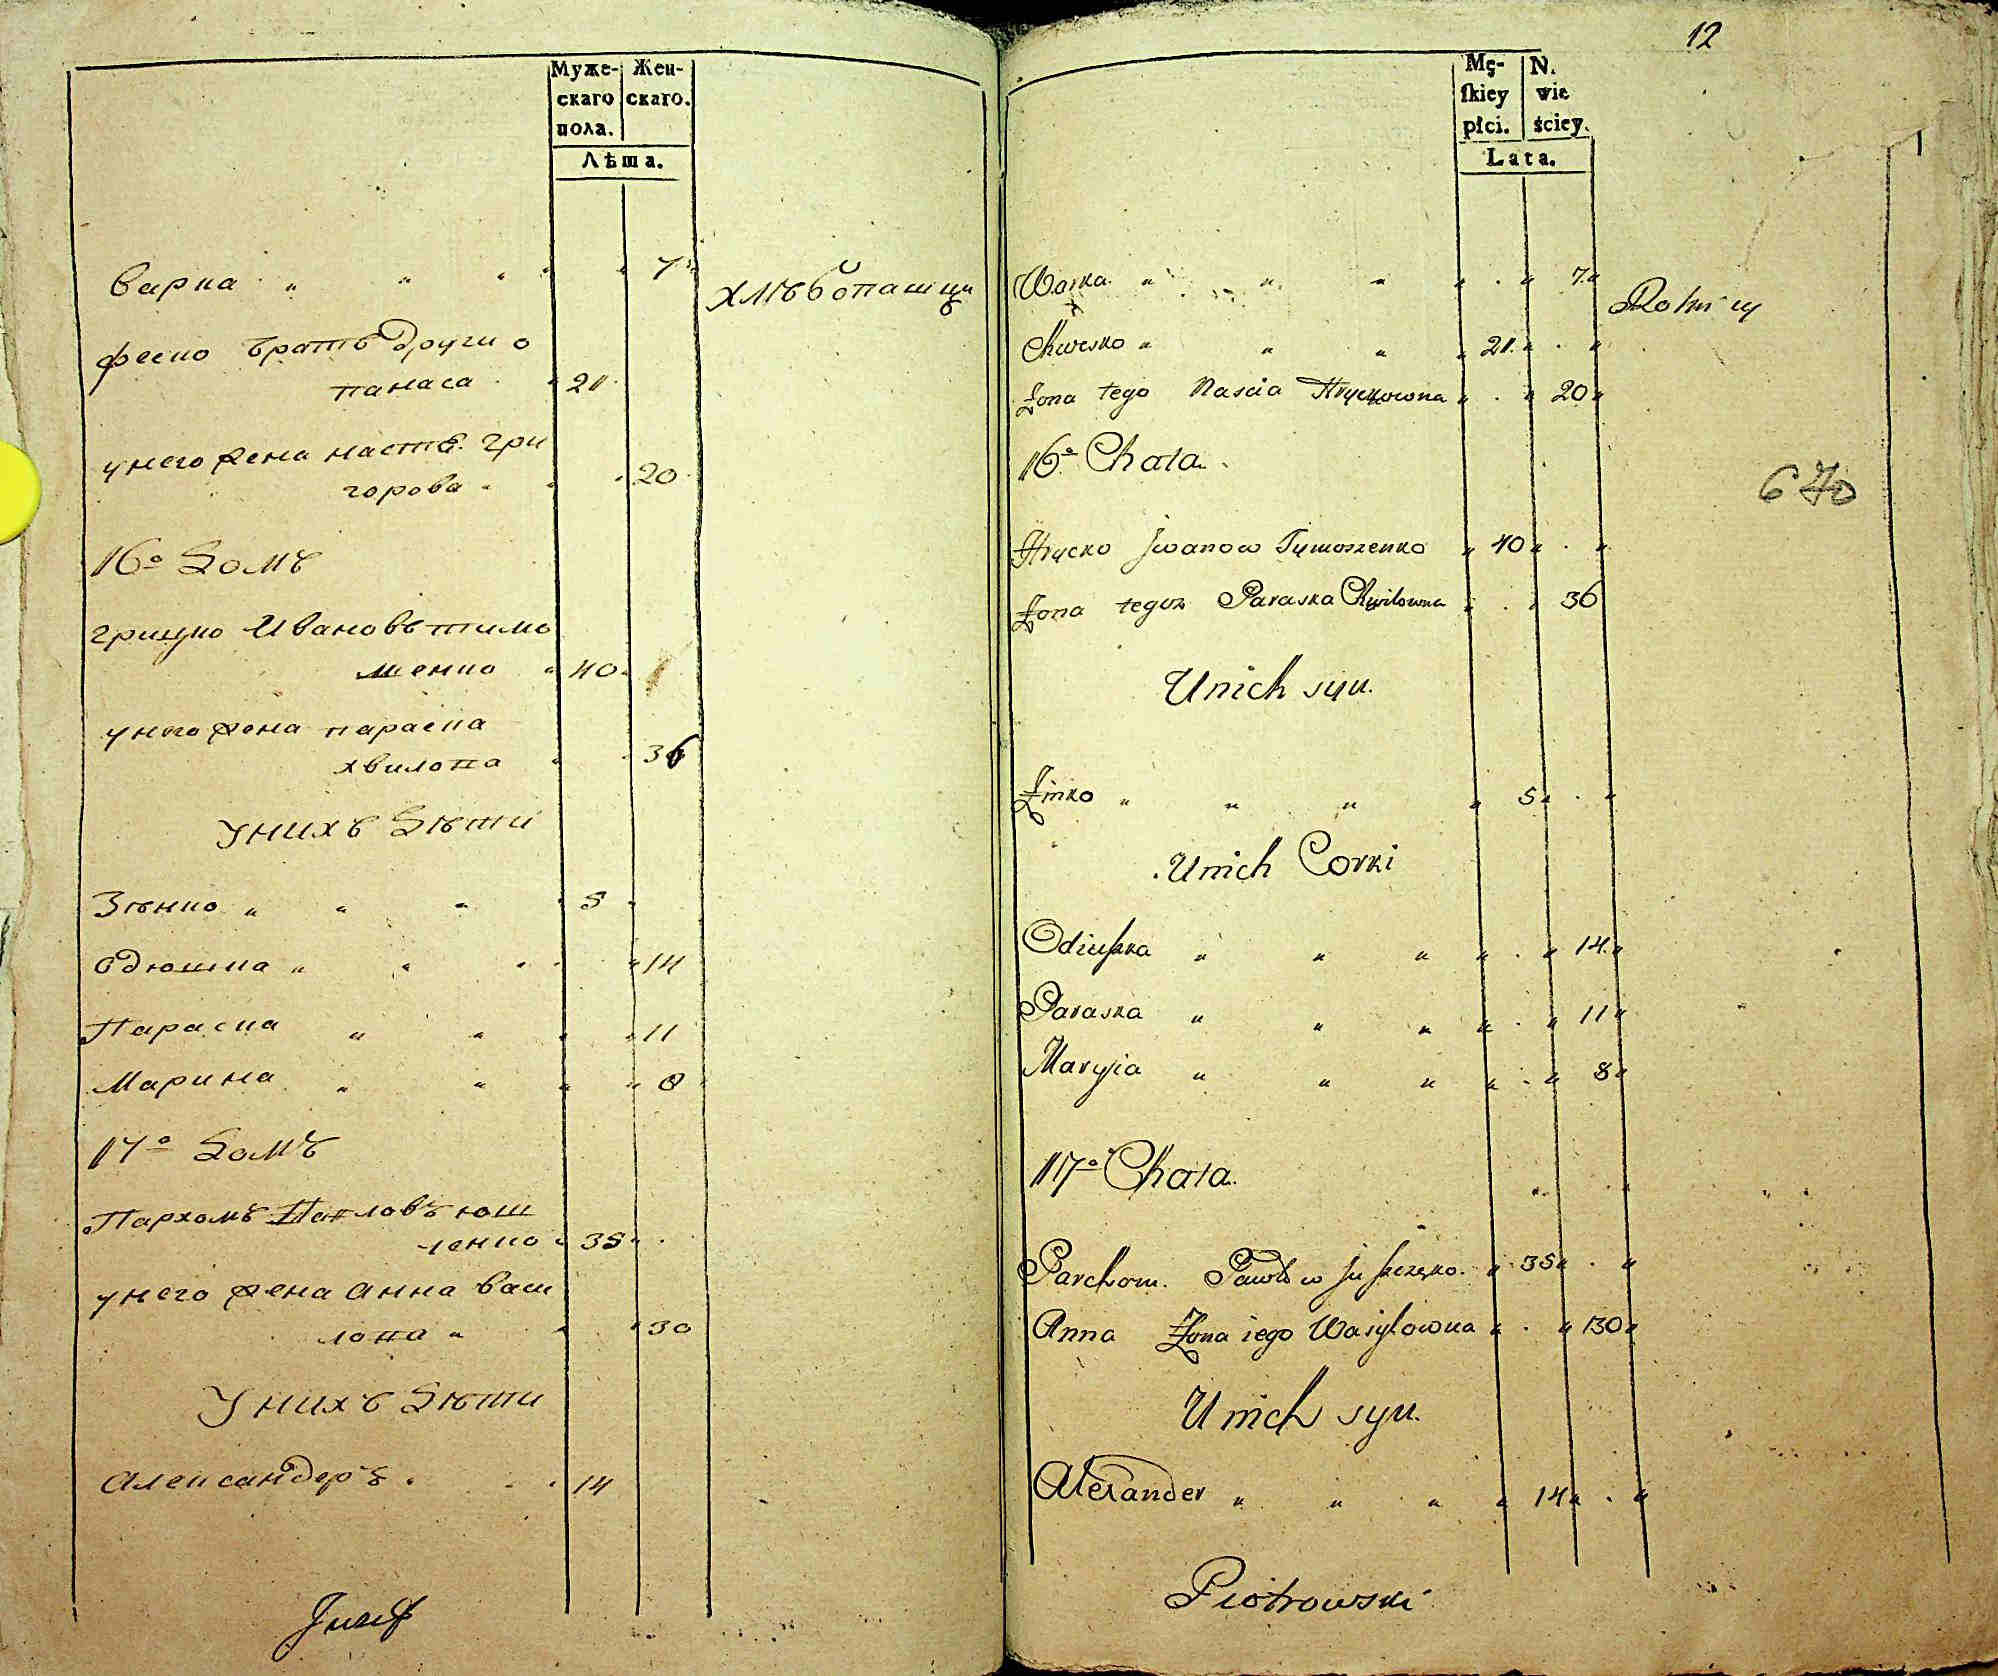 Муже- Жен-
скаго скаго.
пола.
Лѣта.
Варка " " " " " 7"
хлѣбопашцы
феско братъ други
панаса " 21
унего жена настя Гри
горова " " " 20
16º Домъ
грицко Ивановъ тимо
шенко " 40 "
унего жена параска
хвилопа " " 36
Унихъ Дѣти
Зѣнко " " " " 5 "
Одюшка " " " " 14
Параска " " " " 11
Марина " " " " 8
17º Домъ
Пархомъ Павловъ юш
ченко " 35 "
унего жена анна васи
лова " " " 30
Унихъ Дѣти
Александеръ " " " 14
Józef
12
Mę- N.
skiey wie
płci. ściey.
Lata.
Warka " " " " . " 7 "
Rolnicy
Chwesko " " " " 21 " . "
Żona tego Nascia Hryckowna " . " 20 "
16º Chata.
670
Hrycko Jwanow Tymoszenko " 40 " . "
Żona tegoż Paraska Chwilowna " . " 36
Unich syn.
Zinko " " " " 5 " . "
Unich Corki
Odiuszka " " " " . " 14 "
Paraska " " " " . " 11 "
Maryia " " " " . " 8 "
17º Chata.
Parchom. Pawłow Juszczęko. " 35 " . "
Anna Żona iego Wasylowna " . " 30 "
Unich syn.
Alexander " " " " 14 " . "
Piotrowski